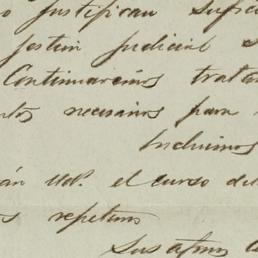 o justifican sufic
gestión judicial s
Continuaremos trata
ntos necesarios para
Incluimos
rán Ud. el curso del
os repetimos
Sus atmos